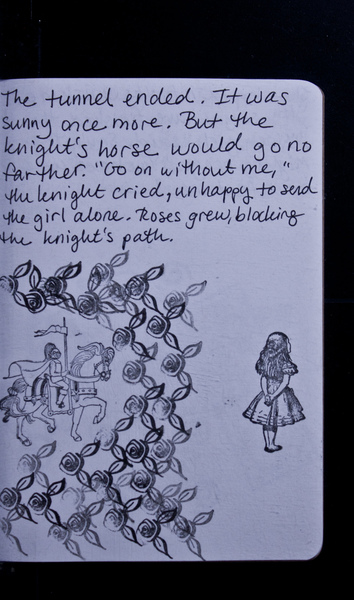 The tunnel ended. It was
sunny once more. But the
knight's horse would go no
farther. "Go on without me,"
the knight cried, unhappy to send
the girl alone. Roses grew, blocking
the knight's path.